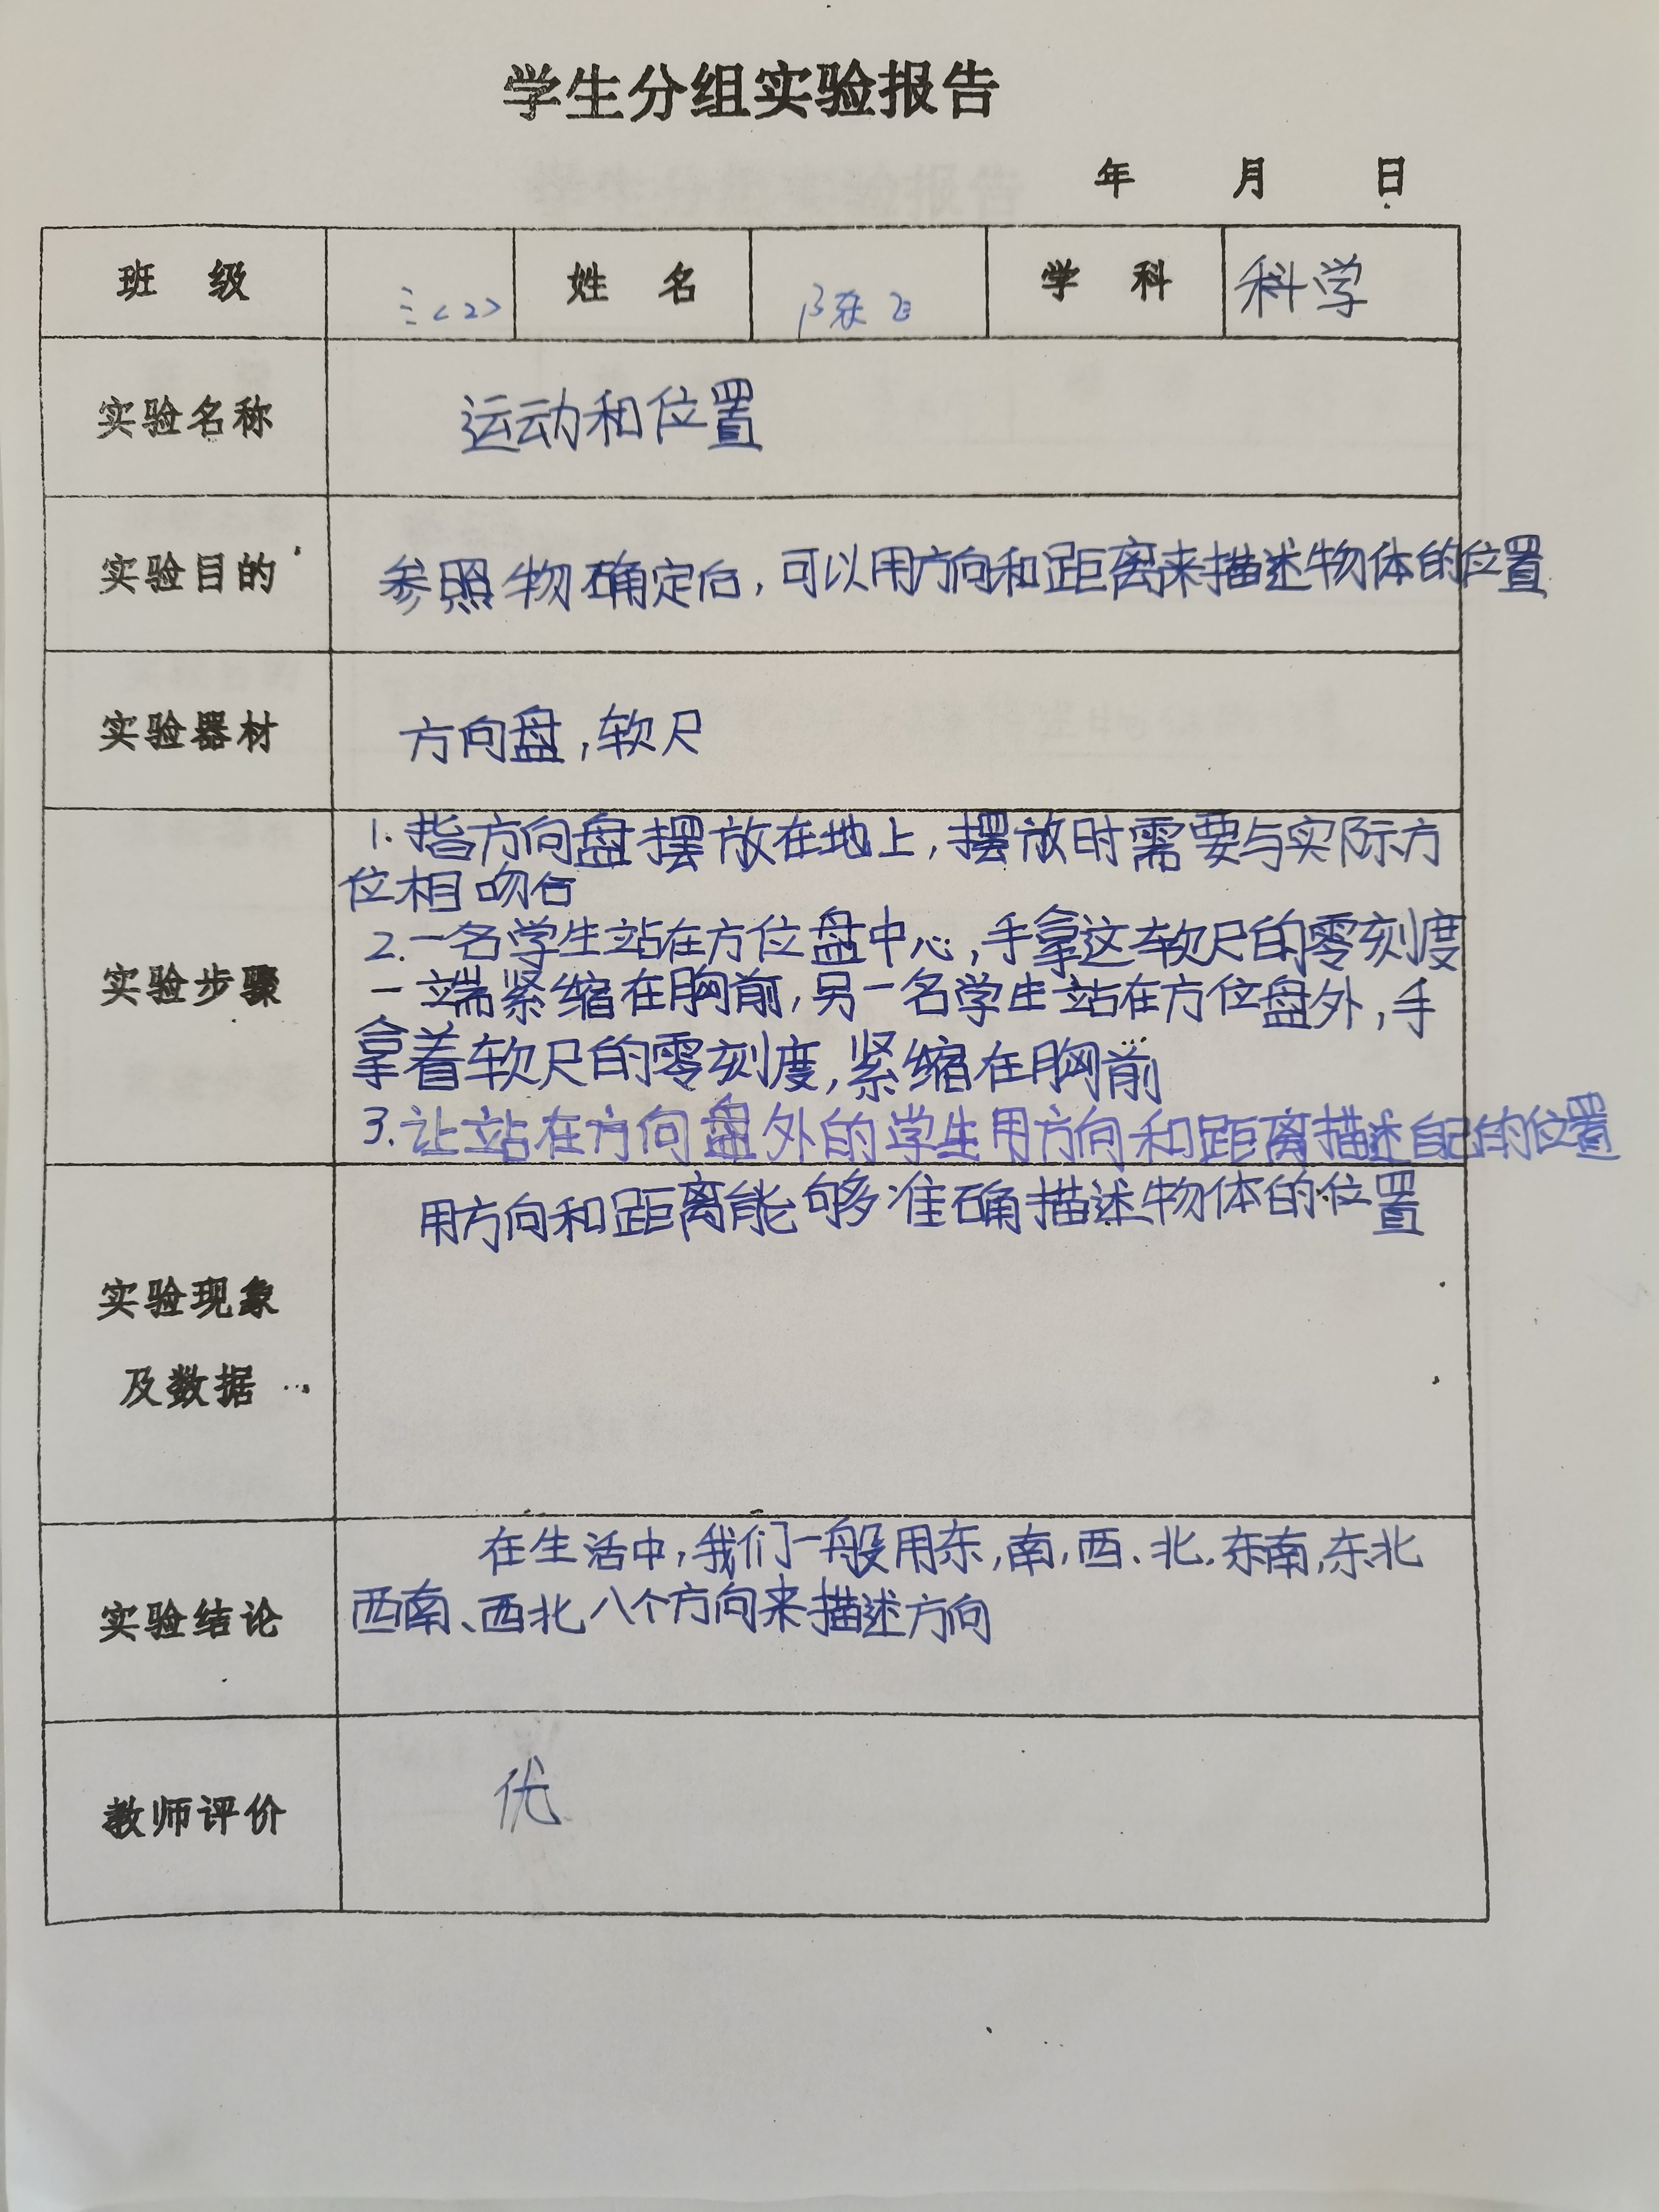 学生分组实验报告
年 月 日
班 级 三<2> 姓 名 陈飞 学 科 科学
实验名称 运动和位置
实验目的 参照物确定后,可以用方向和距离来描述物体的位置
实验器材 方向盘,软尺
实验步骤
1.指方向盘摆放在地上,摆放时需要与实际方
位相吻合
2.一名学生站在方位盘中心,手拿这软尺的零刻度
一端紧缩在胸前,另一名学生站在方位盘外,手
拿着软尺的零刻度,紧缩在胸前
3.让站在方向盘外的学生用方向和距离描述自己的位置
实验现象
及数据
用方向和距离能够准确描述物体的位置
实验结论
在生活中,我们一般用东,南,西、北.东南,东北
西南、西北八个方向来描述方向
教师评价 优